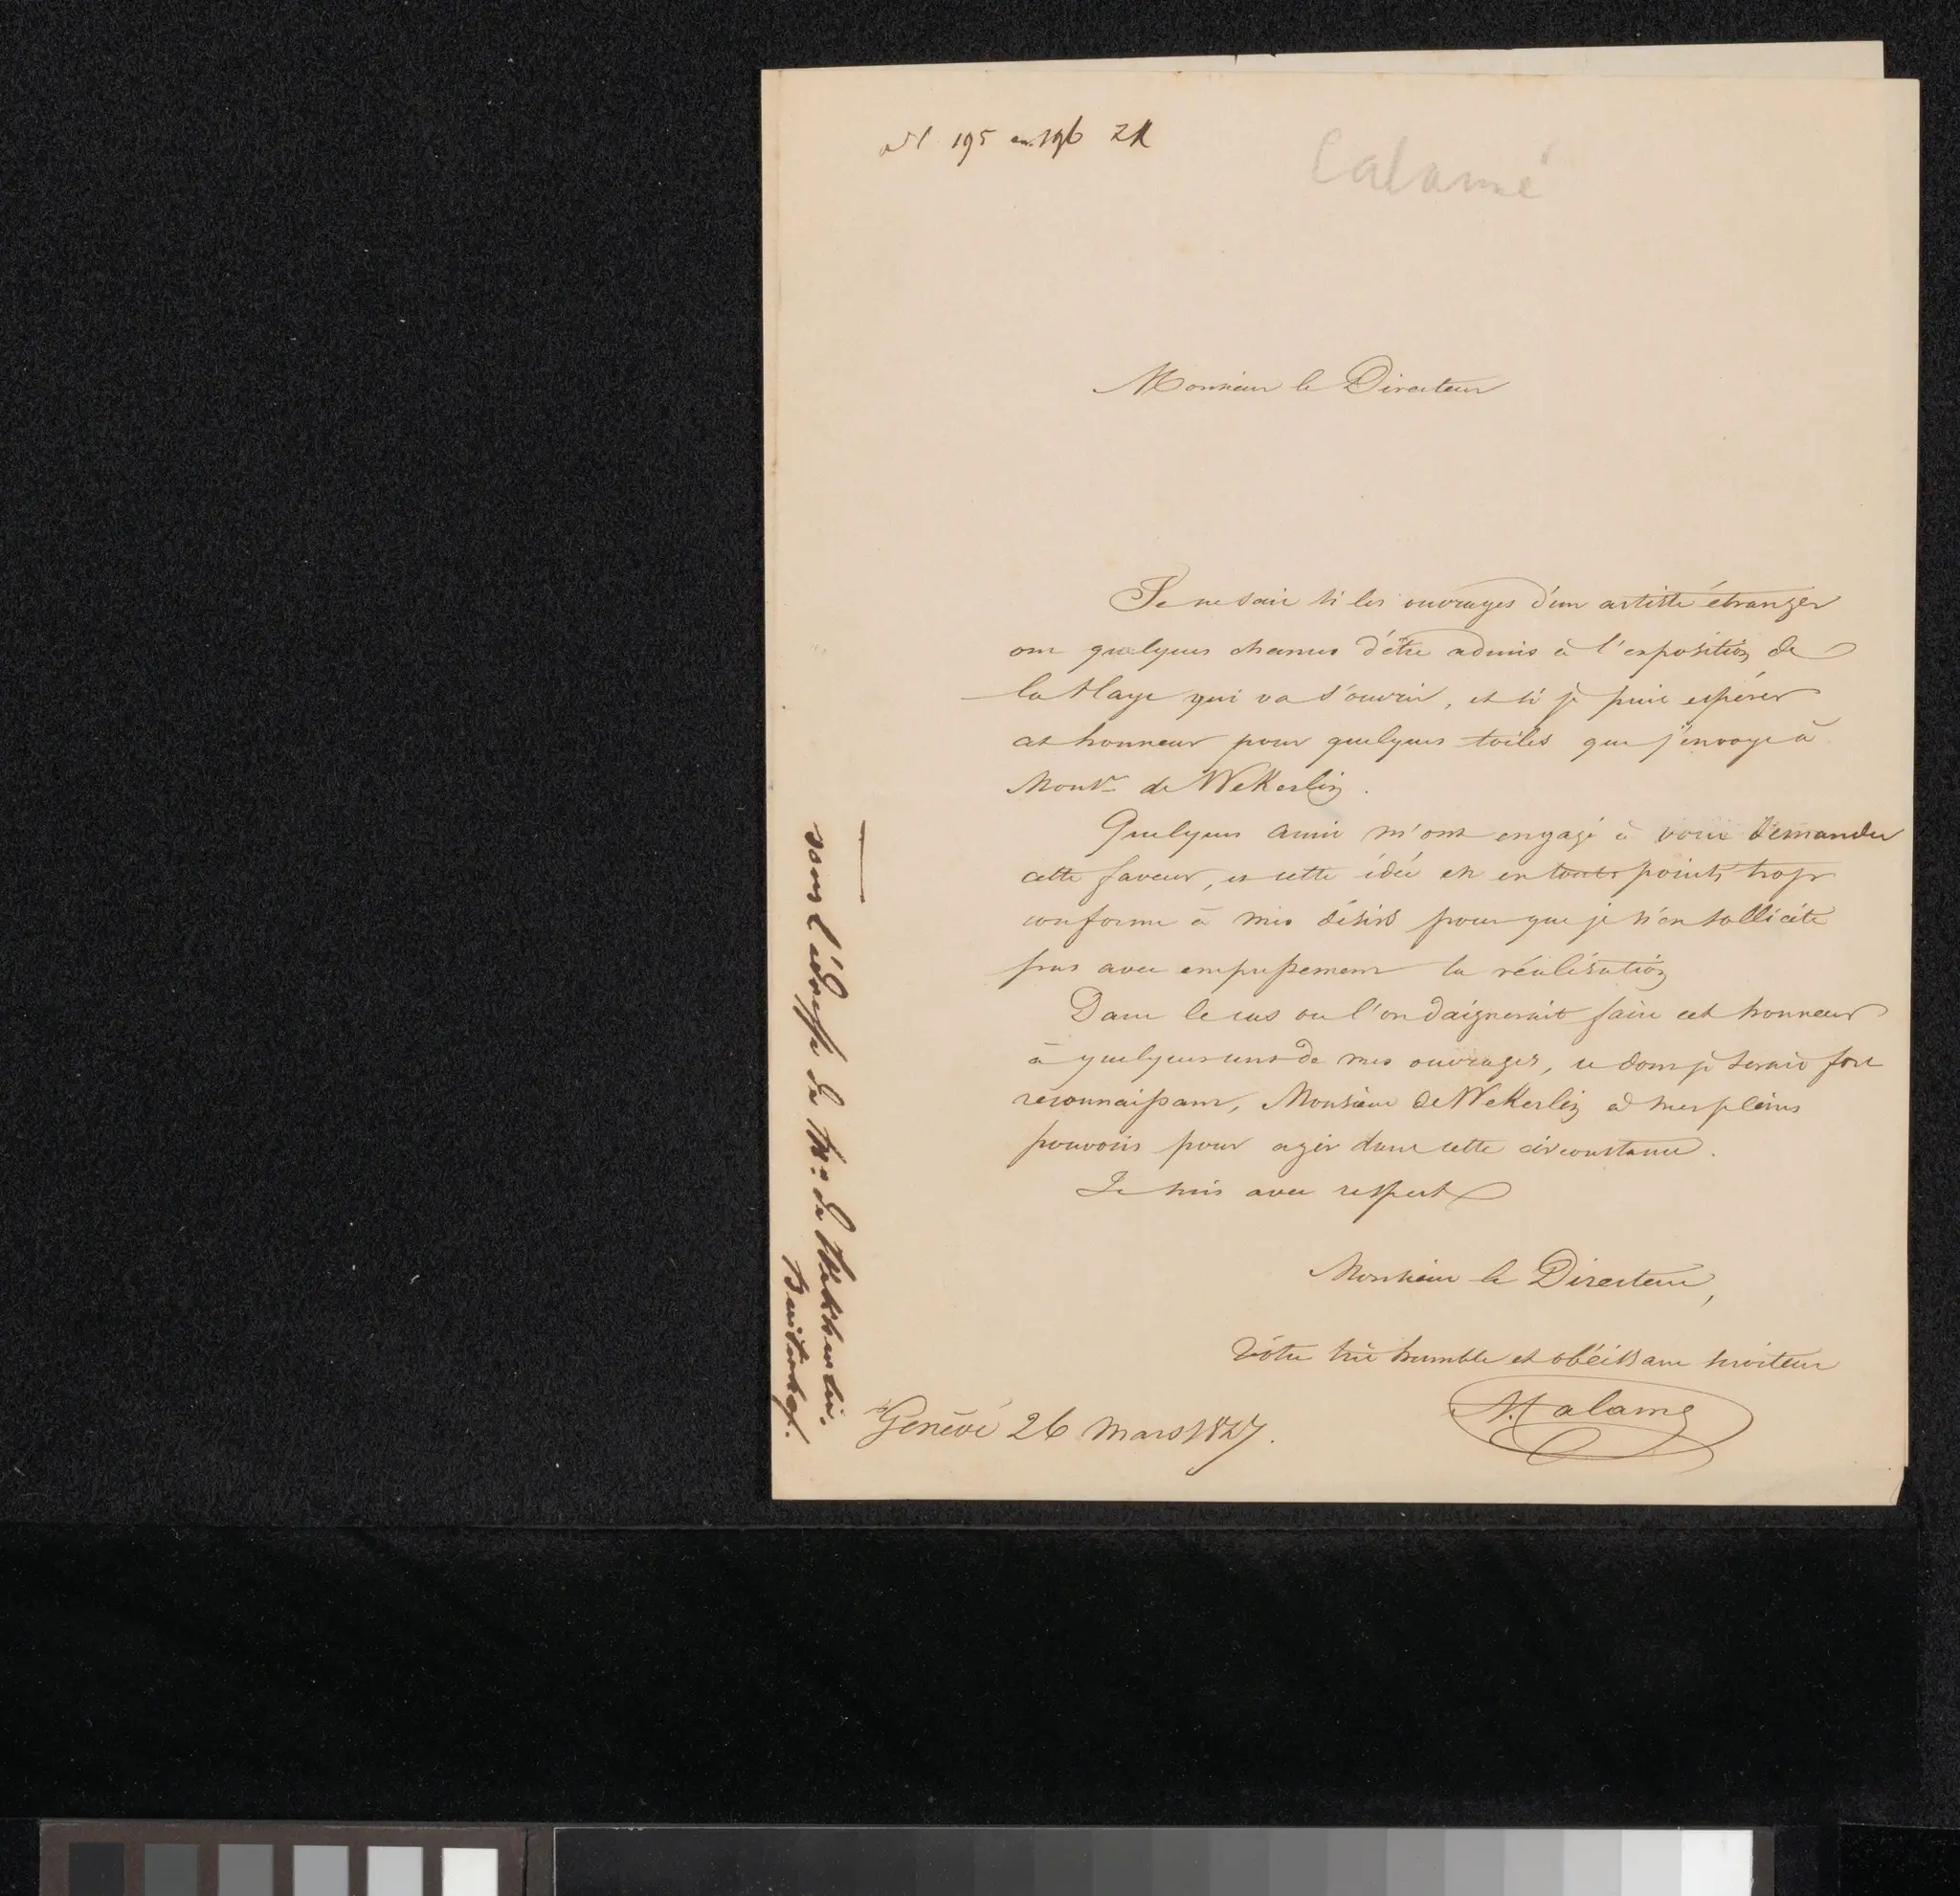 195 en 196 ZK
Calamé
Monsieur le Directeur
Je ne sais si les ouvrages d'un artiste étranger
ont quelques chances d'être admis à l'exposition de
la Haye qui va s'ouvrir, et si je puis espérer
cet honneur pour quelques toiles que j'envoye à
Monsr de Wekerlin.
Quelques amis m'ont engagé à vous demander
cette faveur, et cette idée est en touts points trop
conforme à mes désirs pour que je n'en sollicite
pas avec empressement la réalisation
Dans le cas ou l'on daignerait faire cet honneur
à quelques uns de mes ouvrages, ce dont je serais fort
reconnaissant, Monsieur de Wekerlin a mes pleins
pouvoirs pour agir dans cette circonstance.
Je suis avec respect
Monsieur le Directeur,
Votre très humble et obéissant serviteur
A. Calame
Genève 26 Mars 1847.
sous l'adresse de Mr: de Weckherlin.
Buitenhof.